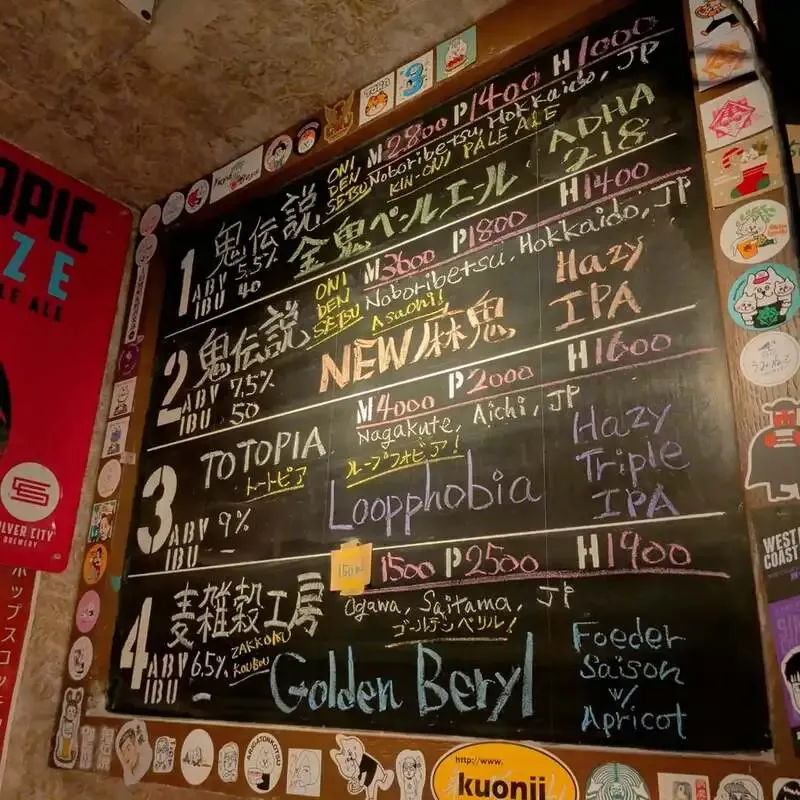 M2800 P1400 H1000
1 鬼伝説 ONI DEN SETSU Noboribetsu, Hokkaido, JP
KIN-ONI PALE ALE
ABV 5.5% 金鬼ペールエール ADHA 218
IBU 40
M3600 P1800 H1400
2 鬼伝説 ONI DEN SETSU Noboribetsu, Hokkaido, JP
Asaoni!
ABV 7.5% NEW 麻鬼 Hazy IPA
IBU 50
M4000 P2000 H1600
3 TOTOPIA Nagakute, Aichi, JP
トートピア ループフォビア!
ABV 9% Loopphobia Hazy Triple IPA
IBU -
150ml 1500 P2500 H1900
4 麦雑穀工房 Ogawa, Saitama, JP
ZAKKOKU KOUBOU ゴールデンベリル!
ABV 6.5% Golden Beryl Foeder Saison w/ Apricot
IBU -
OPIC
ZE
LE ALE
LVER CITY
BREWERY
ホップスコッ
WEST
COAST
ARIGATONKOTSU
http://www.
kuonji